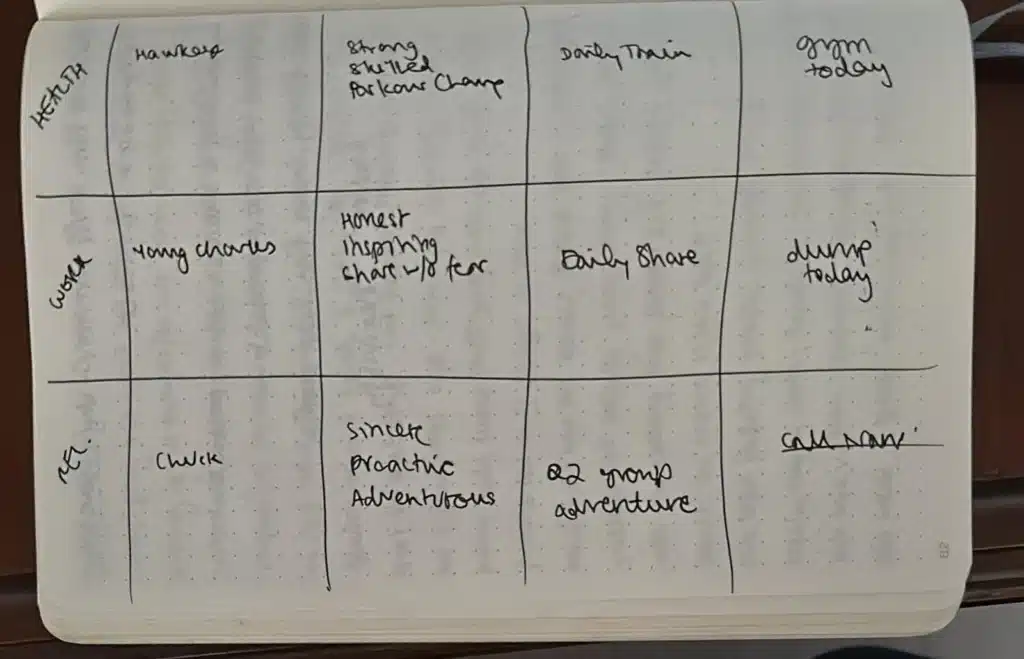 HEALTH
Hawkeye
Strong
Skilled
Parkour Champ
Daily Train
gym
today
WORK
Young Charles
Honest
Inspiring
Share w/o fear
Daily Share
dump
today
REL.
Chuck
Sincere
Proactive
Adventurous
Q2 group
adventure
Call Nani
82